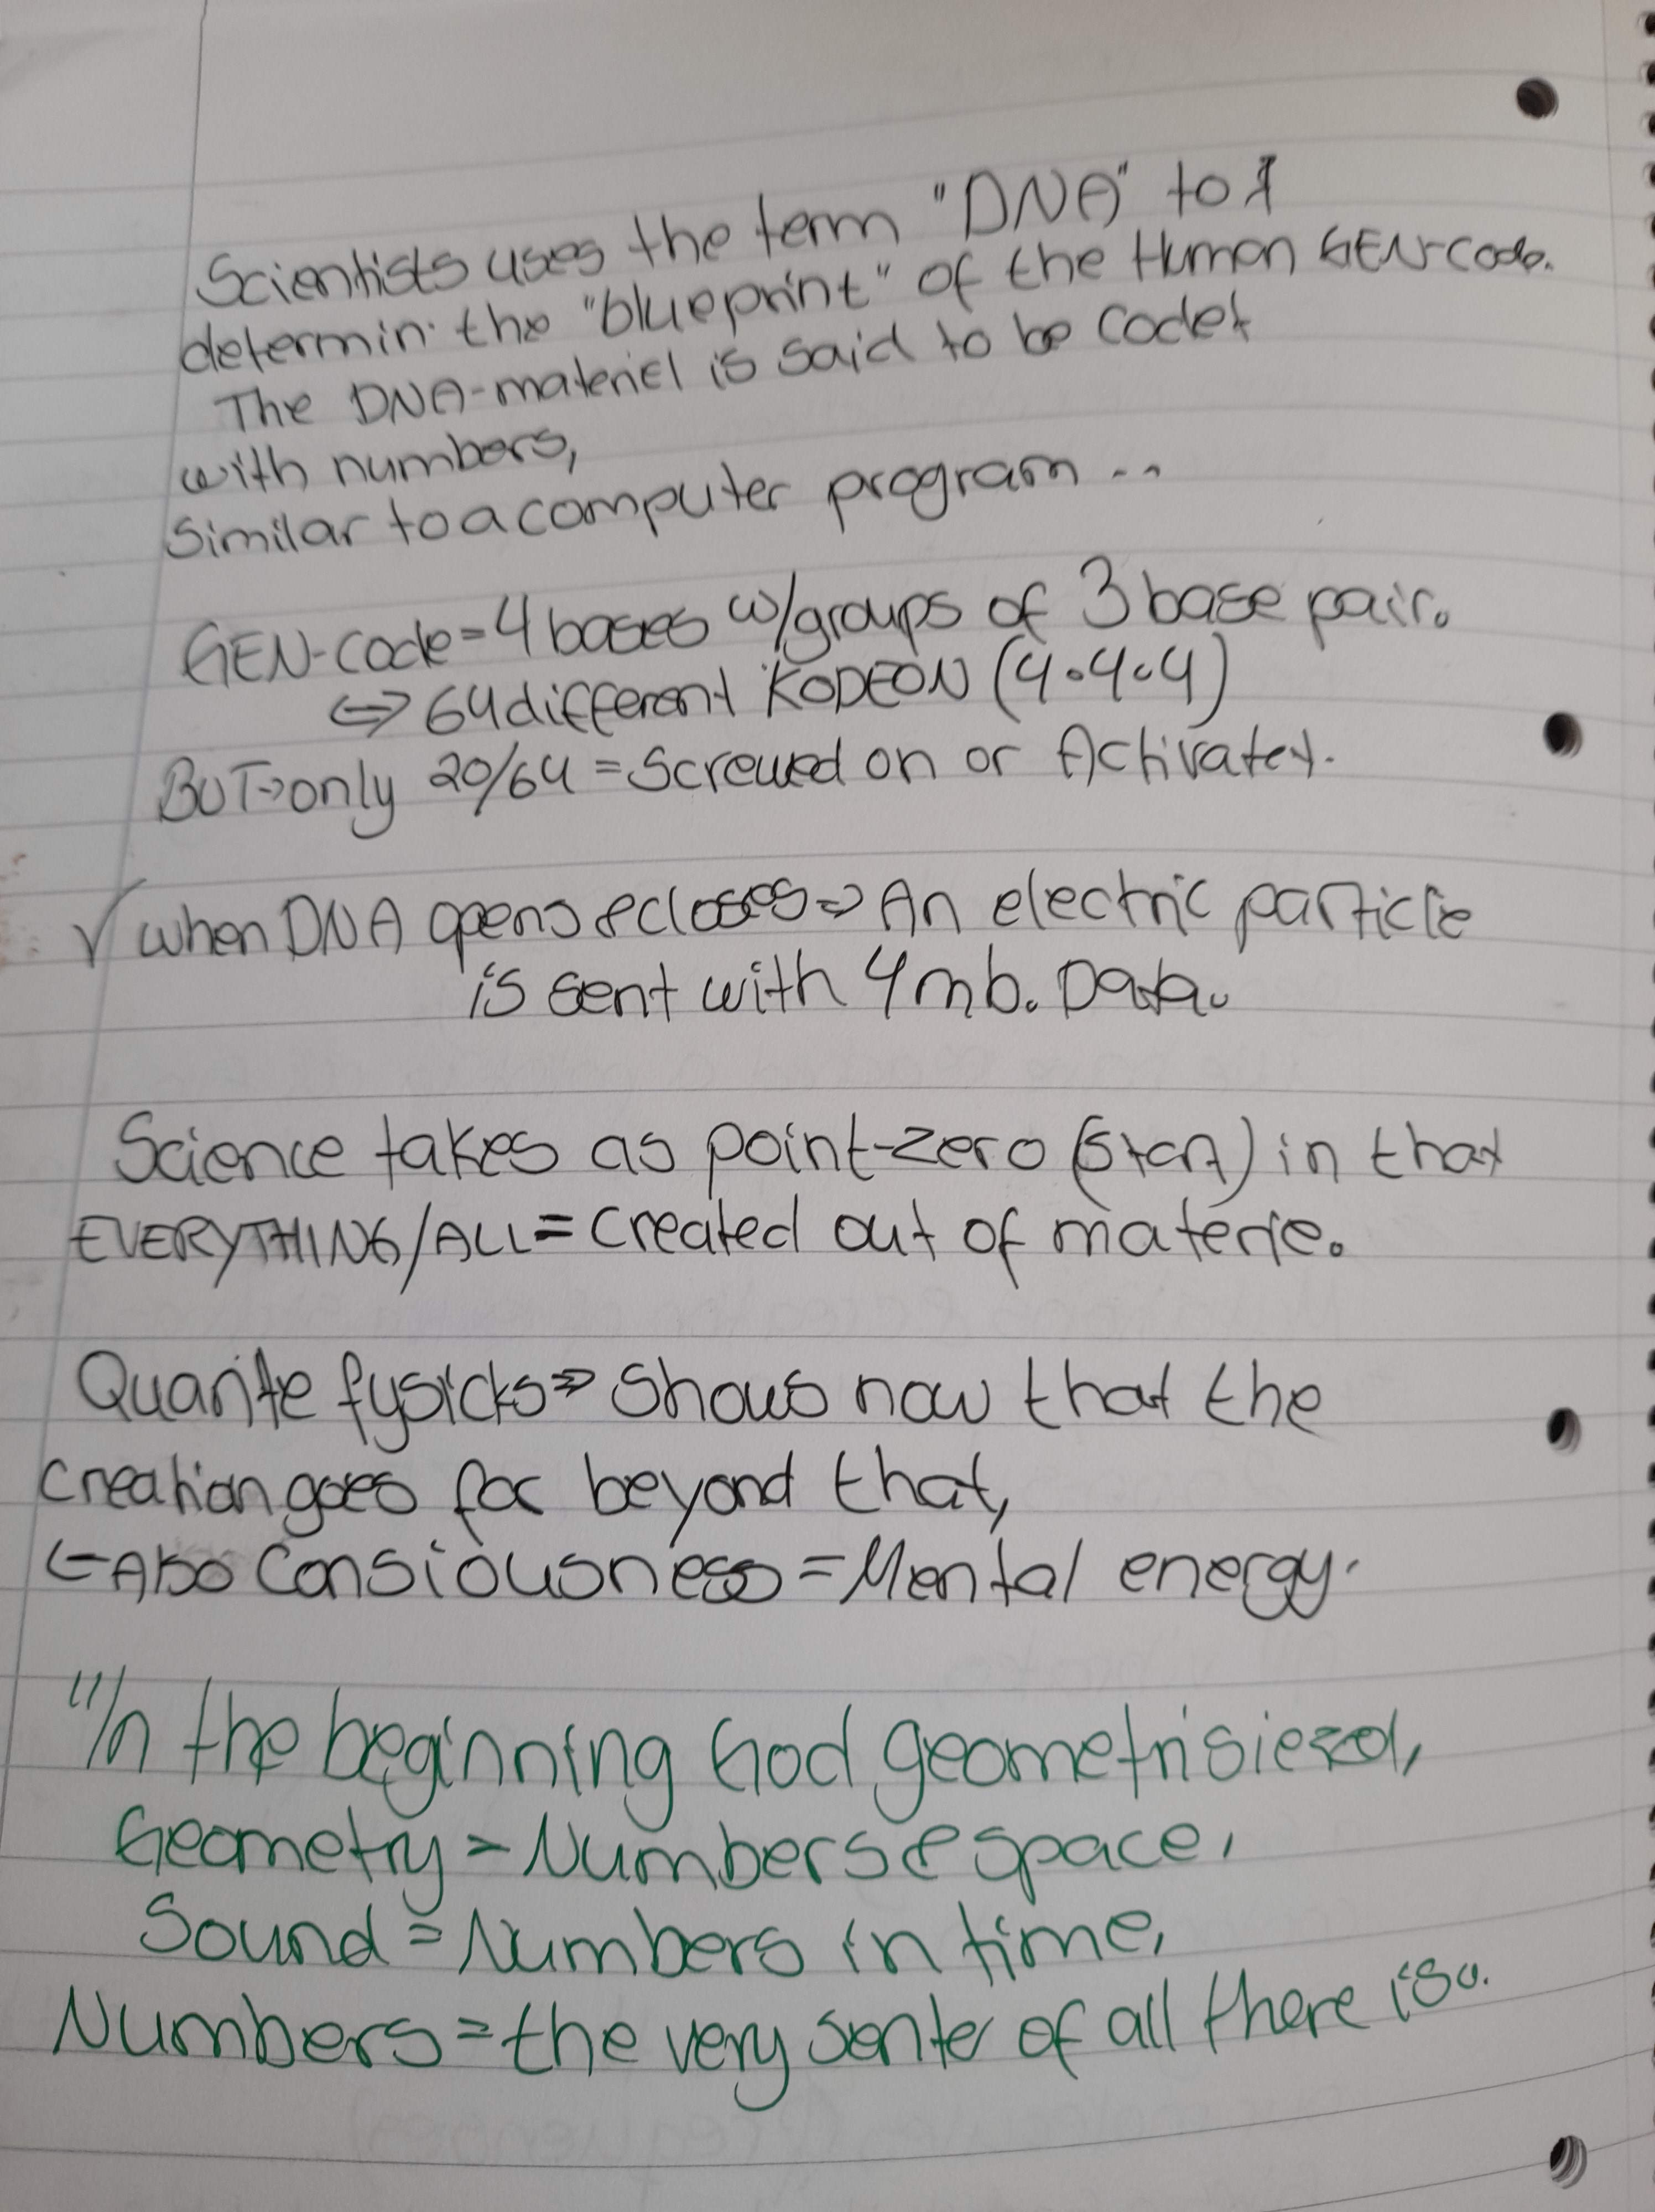 Scientists uses the term "DNA" to
determin the "blueprint" of the Human GEN-code.
The DNA-materiel is said to be codet
with numbers,
Similar to a computer program ..
GEN-code=4 bases w/groups of 3 base pair.
⇔ 64 different KODEON (4·4·4)
BUT→only 20/64 = Screwed on or Activatet.
√ when DNA opens & closes => An electric particle
is sent with 4 mb. Data.
Science takes as point-zero (Start) in that
EVERYTHING/ALL = Created out of materie.
Quante fysicks => Shows now that the
creation goes far beyond that,
← Also Consiousness = Mental energy.
"In the beginning God geometrisiezed,
Geometry = Numbers & space,
Sound = Numbers in time,
Numbers = the very senter of all there is..